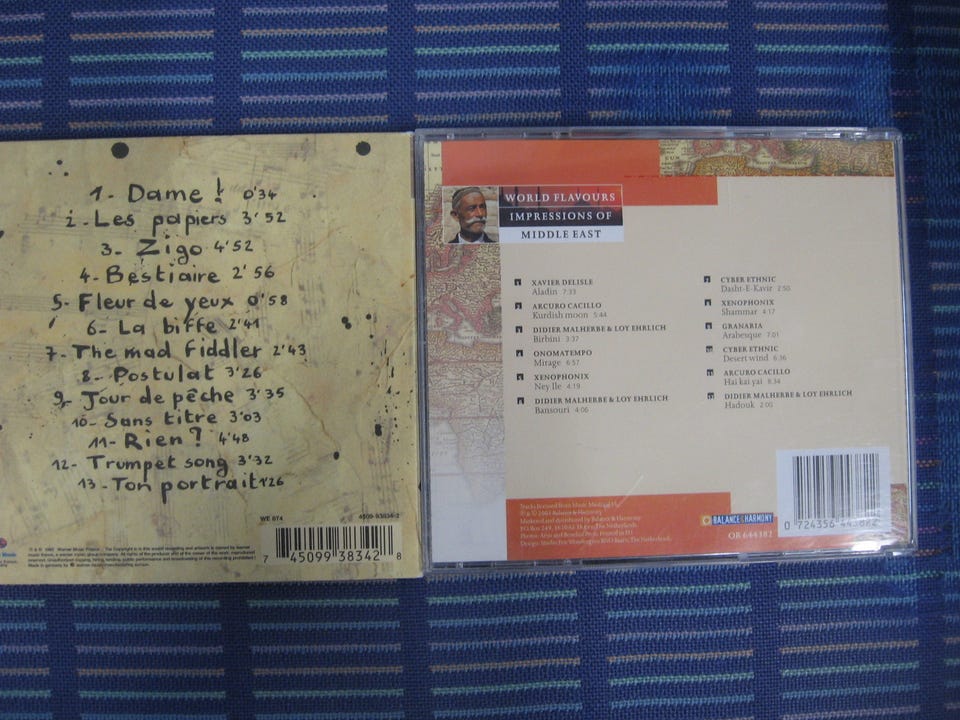 1- Dame! 0'34
2-Les papiers 3'52
3- Zigo 4'52
4- Bestiaire 2'56
5- Fleur de yeux 0'58
6- La biffe 2'41
7- The mad fiddler 2'43
8- Postulat 3'26
9- Jour de pêche 3'35
10- Sans titre 3'03
11- Rien? 4'48
12- Trumpet song 3'32
13- Ton portrait 1'26
WE 874
4509-93834-2
7 45099 38342 8
WORLD FLAVOURS
IMPRESSIONS OF
MIDDLE EAST
XAVIER DELISLE
Aladin 7:33
ARCURO CACILLO
Kurdish moon 5:44
DIDIER MALHERBE & LOY EHRLICH
Birbini 3:37
ONOMATEMPO
Mirage 6:57
XENOPHONIX
Ney Ile 4:19
DIDIER MALHERBE & LOY EHRLICH
Bansouri 4:06
CYBER ETHNIC
Dasht-E-Kavir 2:50
XENOPHONIX
Shammar 4:17
GRANARIA
Arabesque 7:01
CYBER ETHNIC
Desert wind 6:36
ARCURO CACILLO
Hai kai yai 8:34
DIDIER MALHERBE & LOY EHRLICH
Hadouk 2:05
Balance & Harmony
Marketed and distributed by Balance & Harmony
The Netherlands
BALANCE & HARMONY
OR 644382
0 724356 443822